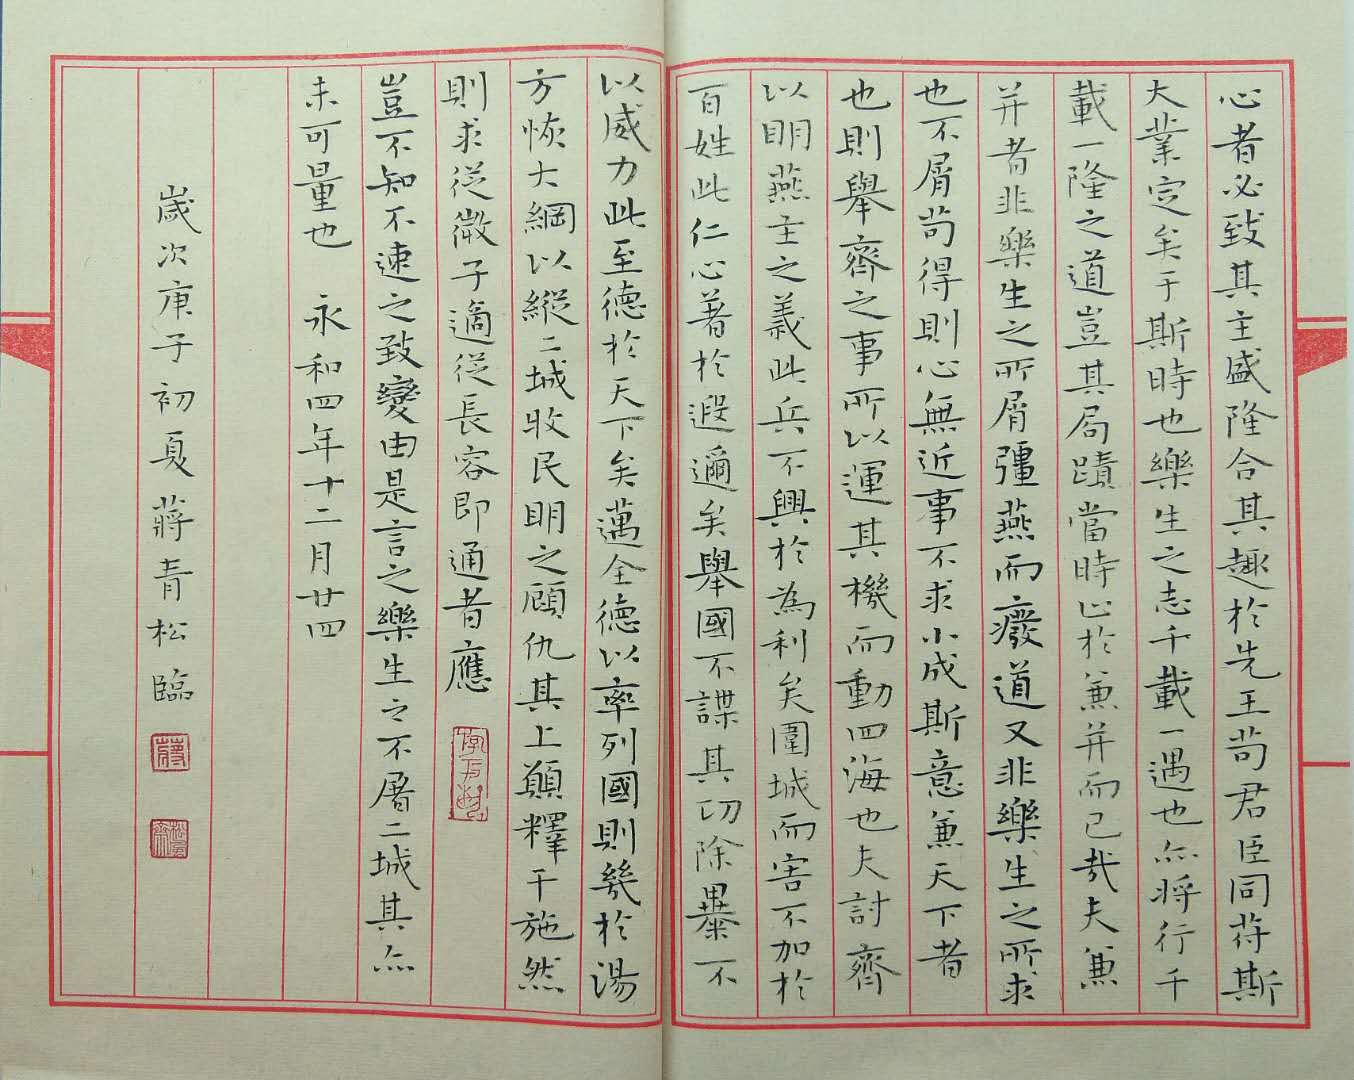 心者必致其主盛隆合其趣於先王苟君臣同苻斯
大業定矣于斯時也樂生之志千載一遇也亦將行千
載一隆之道豈其局蹟當時止於兼并而已哉夫兼
并者非樂生之所屑彊燕而癈道又非樂生之所求
也不屑苟得則心無近事不求小成斯意兼天下者
也則舉齊之事所以運其機而動四海也夫討齊
以明燕主之義此兵不興於為利矣圍城而害不加於
百姓此仁心著於遐邇矣舉國不謀其功除暴不
以威力此至德於天下矣邁全德以率列國則幾於湯
方恢大綱以縱二城收民明之顧仇其上願釋干施然
則求從微子適從長容即通者應
豈不知不速之致變由是言之樂生之不屠二城其亦
未可量也 永和四年十二月廿四
歲次庚子初夏蔣青松臨